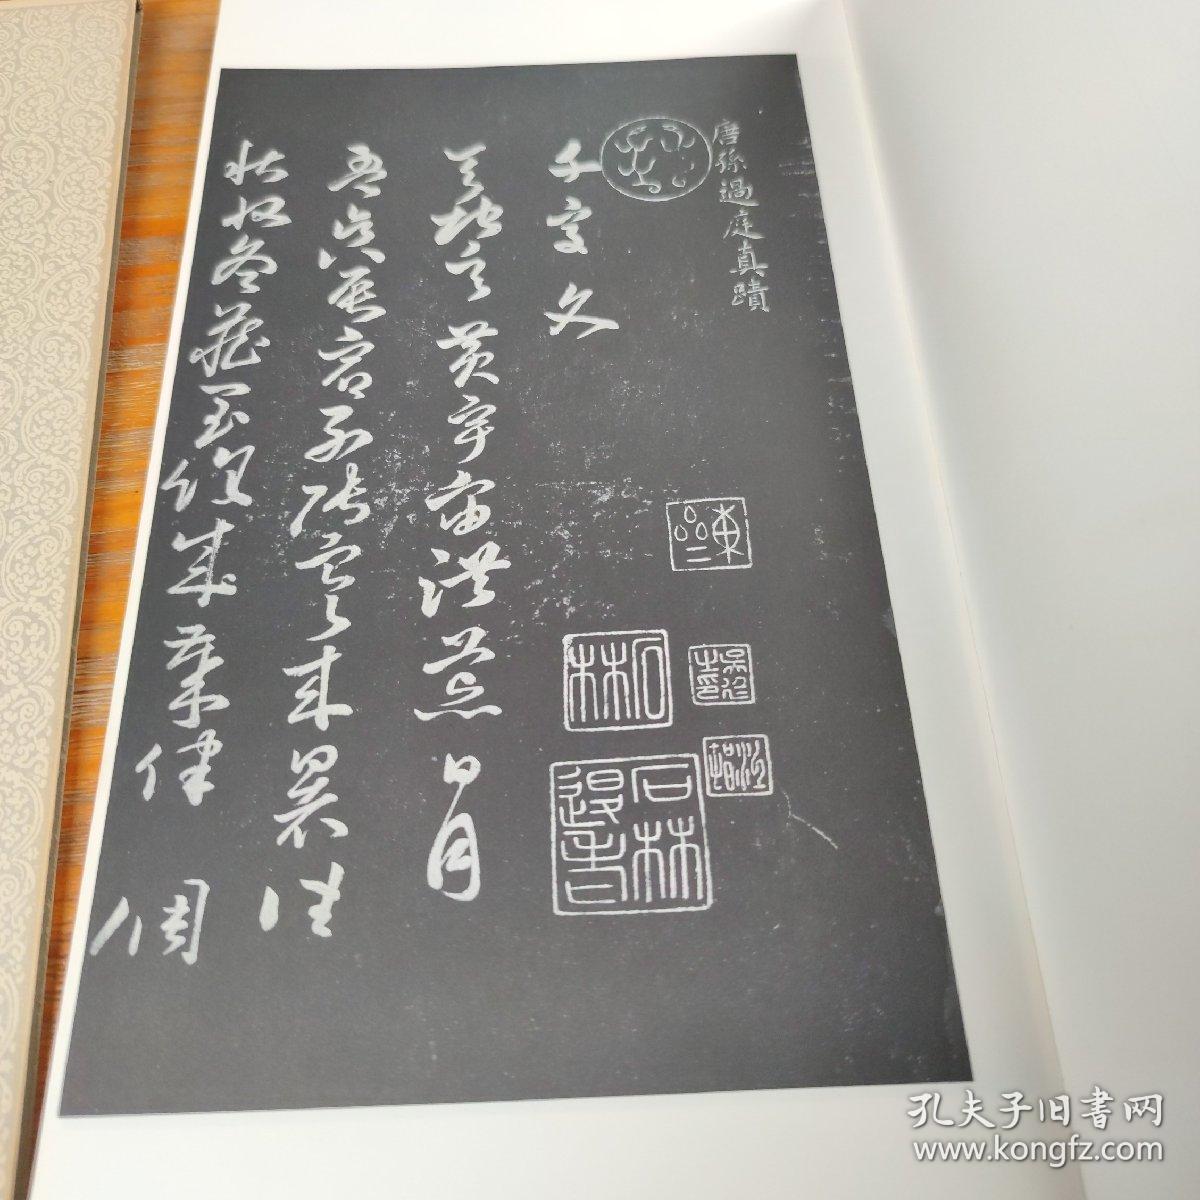 唐孫過庭真蹟
千字文
天地玄黄宇宙洪荒日月
盈昃辰宿列張寒來暑往
秋收冬藏閏餘成歲律調
石林
孔夫子旧书网
www.kongfz.com